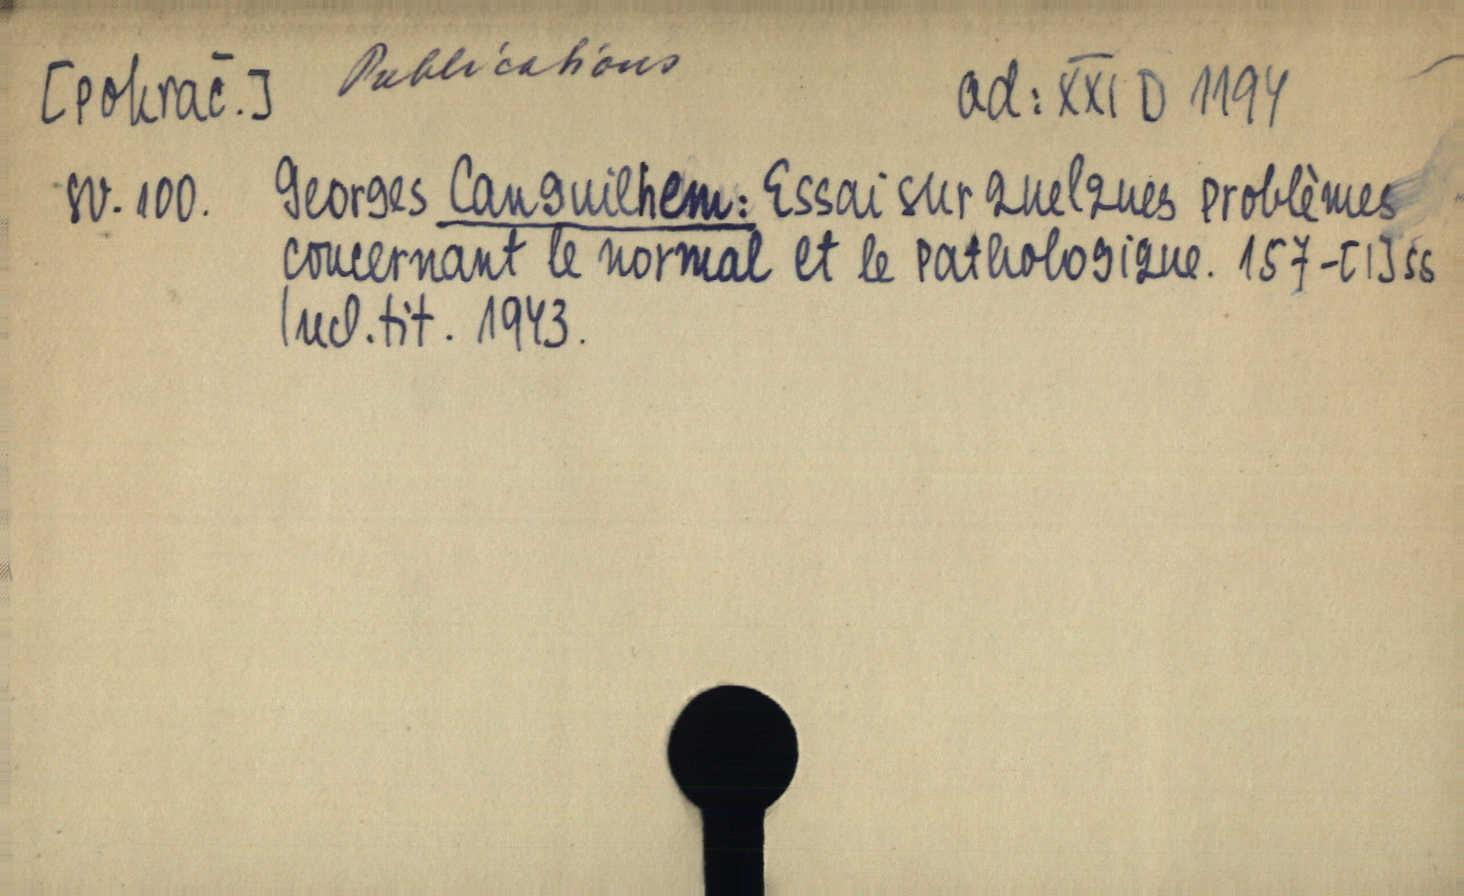 [pokrač.] Publications ad: XXI D 1194
sv. 100. Georges Canguilhem: Essai sur quelques problèmes
concernant le normal et le pathologique. 157-[1] ss
Incl. tit. 1943.